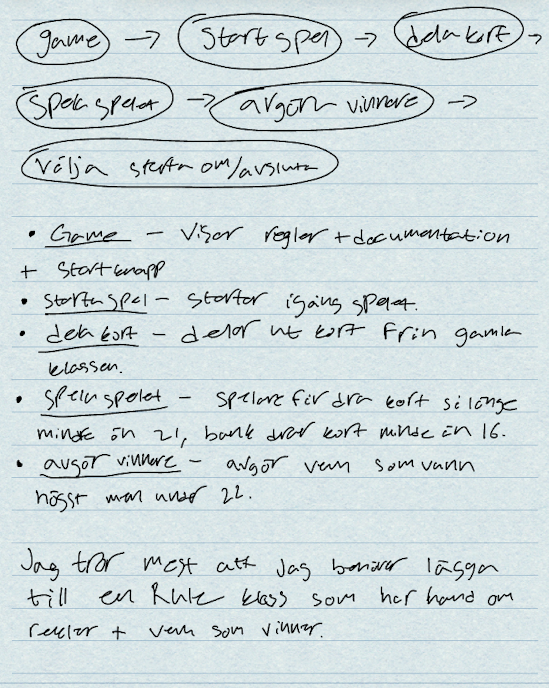 game → Start spel → dela kort →
Spela spelet → avgöra vinnare →
Välja starta om/avsluta
• Game - Visar regler + documentation
+ Startknapp
• starta spel - startar igång spelet.
• dela kort - delar ut kort från gamla
klassen.
• spela spelet - spelare får dra kort så länge
mindre än 21, bank drar kort mindre än 16.
• avgör vinnare - avgör vem som vann
högst men under 22.
Jag tror mest att jag behöver lägga
till en Rule klass som har hand om
regler + vem som vinner.